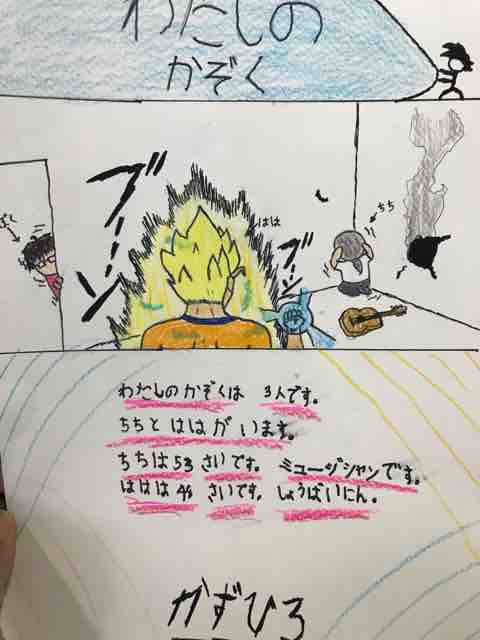 わたしの
かぞく
ブーーン
はは
ブーン
ちち
ぼく
わたしのかぞくは 3人です。
ちちと ははがいます。
ちちは53さいです。ミュージシャンです。
ははは48さいです。しょうばいにん。
かずひろ